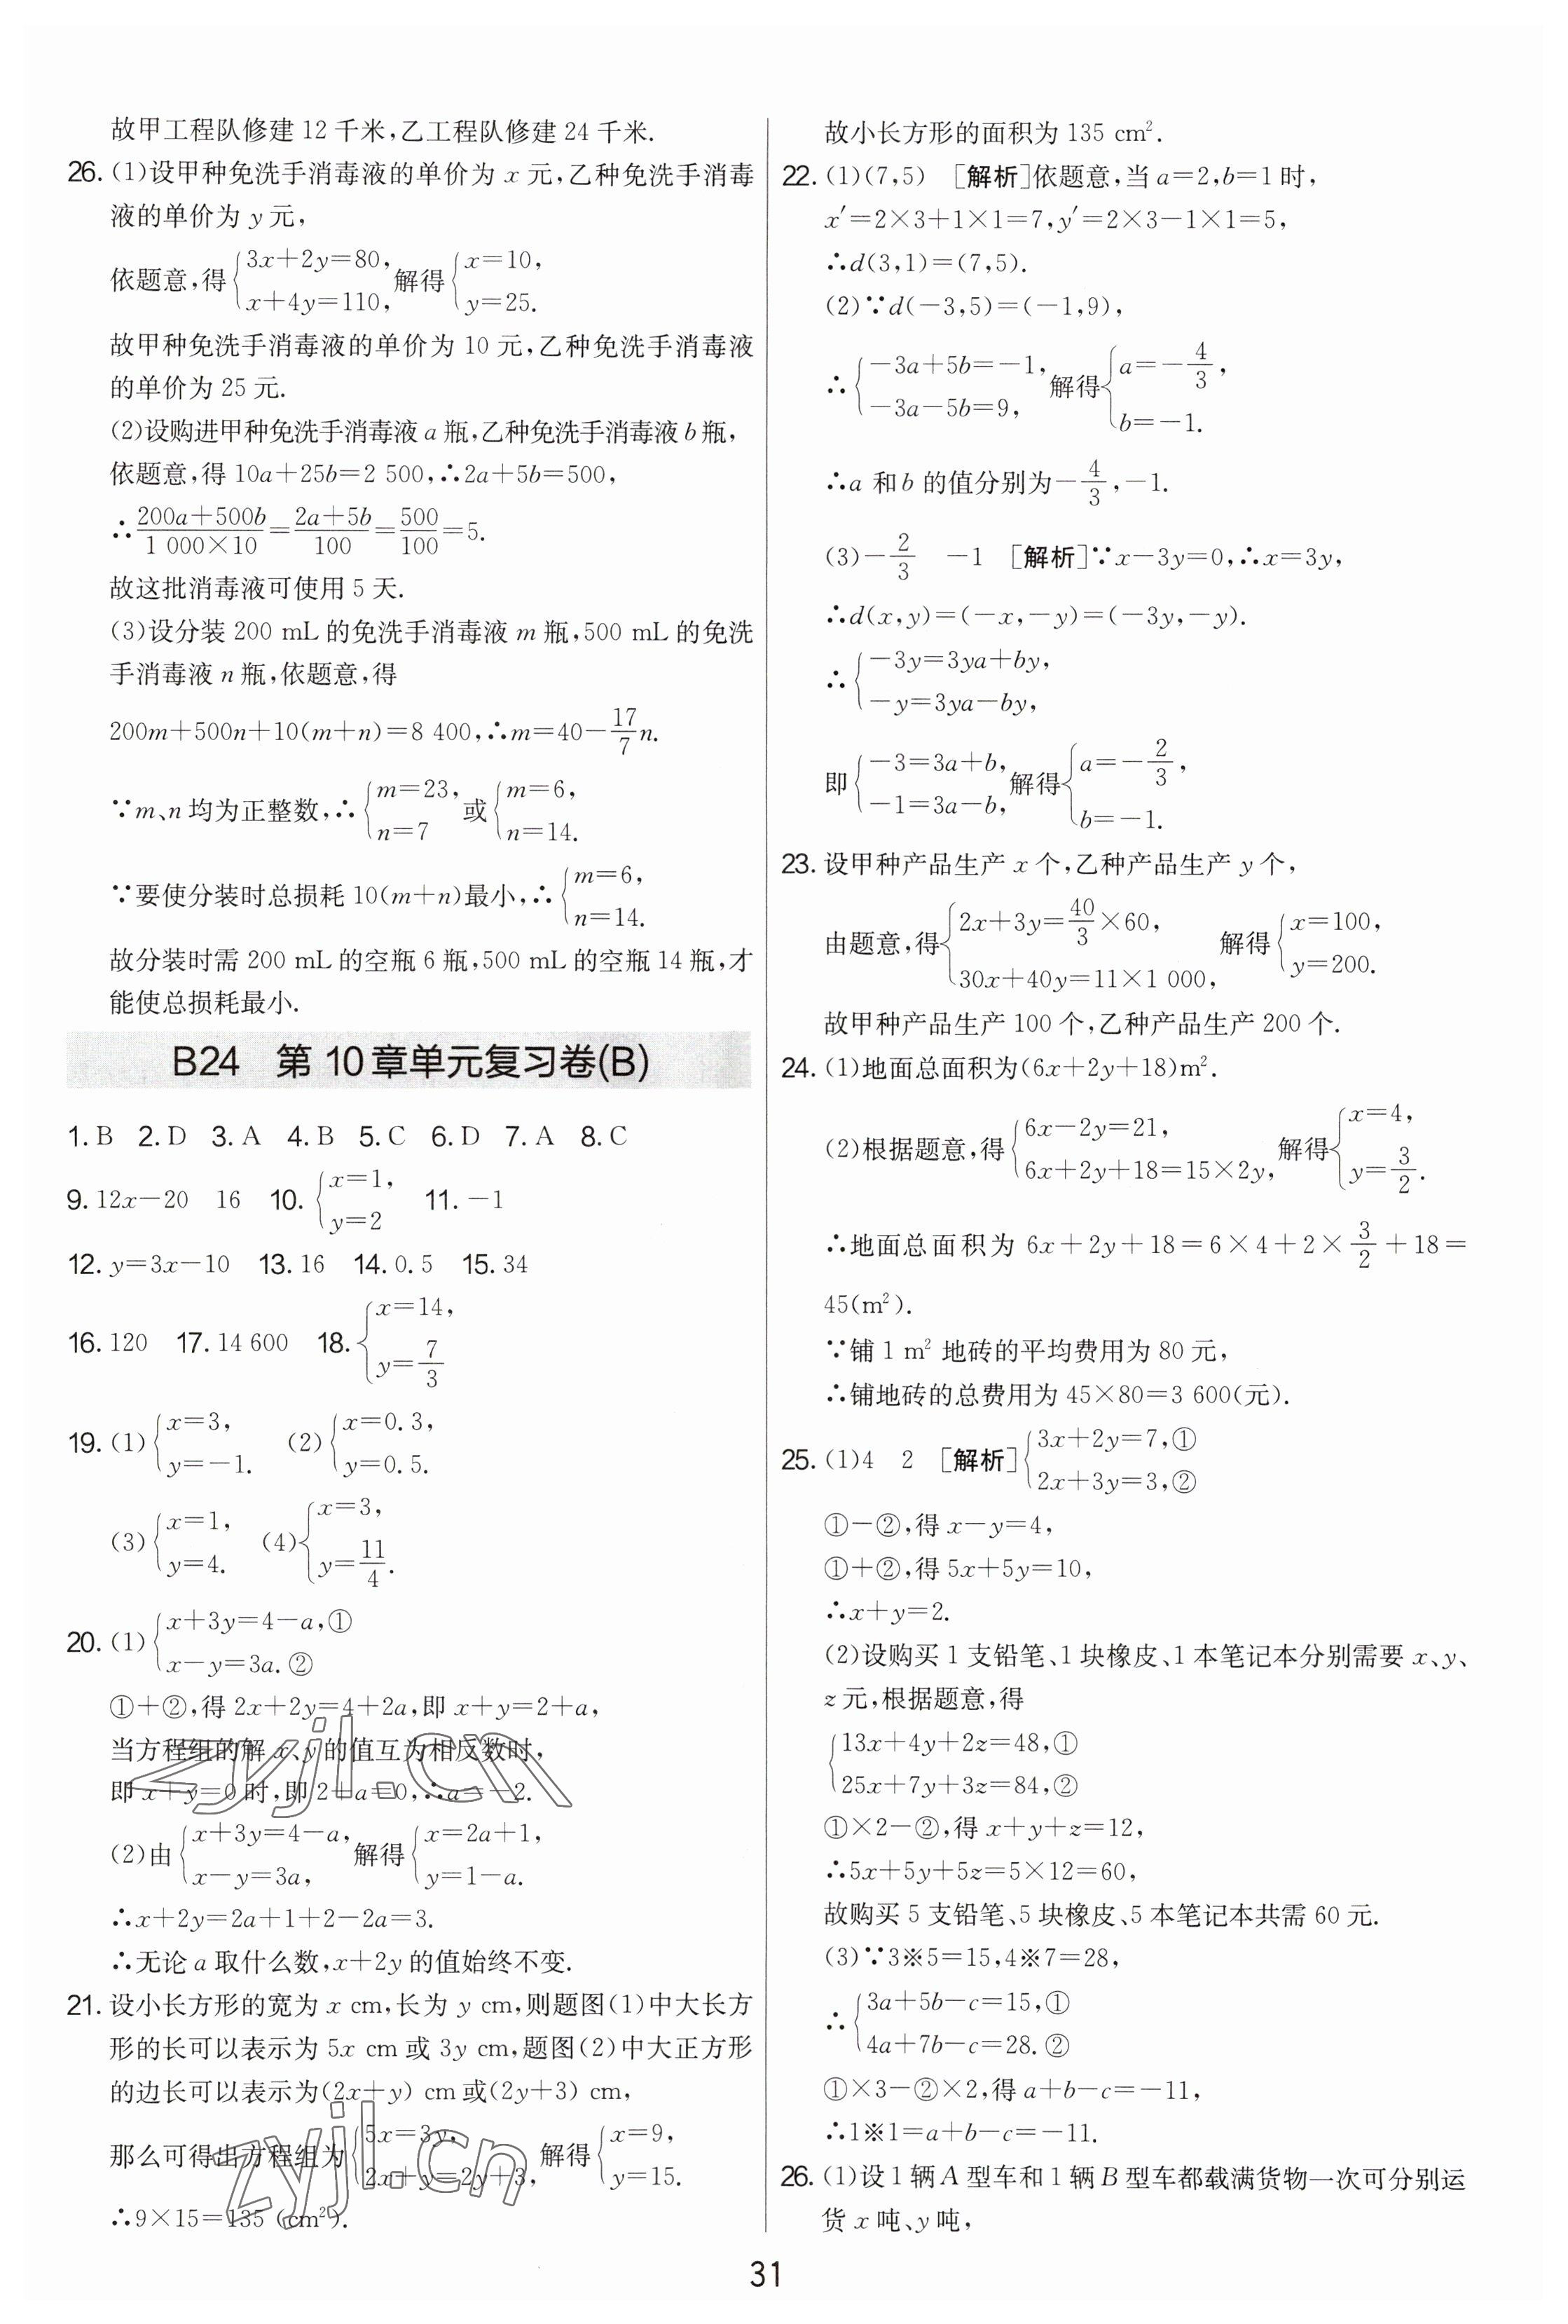 故甲工程队修建12千米,乙工程队修建24千米.
26. (1)设甲种免洗手消毒液的单价为x元,乙种免洗手消毒
液的单价为y元,
依题意,得{3x+2y=80, x+4y=110, 解得{x=10, y=25.
故甲种免洗手消毒液的单价为10元,乙种免洗手消毒液
的单价为25元.
(2)设购进甲种免洗手消毒液a瓶,乙种免洗手消毒液b瓶,
依题意,得10a+25b=2 500,∴2a+5b=500,
∴(200a+500b)/(1 000×10)=(2a+5b)/100=500/100=5.
故这批消毒液可使用5天.
(3)设分装200 mL的免洗手消毒液m瓶,500 mL的免洗
手消毒液n瓶,依题意,得
200m+500n+10(m+n)=8 400,∴m=40-17/7n.
∵m、n均为正整数,∴{m=23, n=7 或{m=6, n=14.
∵要使分装时总损耗10(m+n)最小,∴{m=6, n=14.
故分装时需200 mL的空瓶6瓶,500 mL的空瓶14瓶,才
能使总损耗最小.
B24 第10章单元复习卷(B)
1. B 2. D 3. A 4. B 5. C 6. D 7. A 8. C
9. 12x-20 16 10. {x=1, y=2 11. -1
12. y=3x-10 13. 16 14. 0.5 15. 34
16. 120 17. 14 600 18. {x=14, y=7/3
19. (1){x=3, y=-1. (2){x=0.3, y=0.5.
(3){x=1, y=4. (4){x=3, y=11/4.
20. (1){x+3y=4-a,① x-y=3a.②
①+②,得2x+2y=4+2a,即x+y=2+a,
当方程组的解x、y的值互为相反数时,
即x+y=0时,即2+a=0,∴a=-2.
(2)由{x+3y=4-a, x-y=3a, 解得{x=2a+1, y=1-a.
∴x+2y=2a+1+2-2a=3.
∴无论a取什么数,x+2y的值始终不变.
21. 设小长方形的宽为x cm,长为y cm,则题图(1)中大长方
形的长可以表示为5x cm或3y cm,题图(2)中大正方形
的边长可以表示为(2x+y) cm或(2y+3) cm,
那么可得出方程组为{5x=3y, 2x+y=2y+3, 解得{x=9, y=15.
∴9×15=135 (cm²).
故小长方形的面积为135 cm².
22. (1)(7,5) [解析]依题意,当a=2,b=1时,
x′=2×3+1×1=7,y′=2×3-1×1=5,
∴d(3,1)=(7,5).
(2)∵d(-3,5)=(-1,9),
∴{-3a+5b=-1, -3a-5b=9, 解得{a=-4/3, b=-1.
∴a和b的值分别为-4/3,-1.
(3)-2/3 -1 [解析]∵x-3y=0,∴x=3y,
∴d(x,y)=(-x,-y)=(-3y,-y).
∴{-3y=3ya+by, -y=3ya-by,
即{-3=3a+b, -1=3a-b, 解得{a=-2/3, b=-1.
23. 设甲种产品生产x个,乙种产品生产y个,
由题意,得{2x+3y=40/3×60, 30x+40y=11×1 000, 解得{x=100, y=200.
故甲种产品生产100个,乙种产品生产200个.
24. (1)地面总面积为(6x+2y+18)m².
(2)根据题意,得{6x-2y=21, 6x+2y+18=15×2y, 解得{x=4, y=3/2.
∴地面总面积为6x+2y+18=6×4+2×3/2+18=
45(m²).
∵铺1 m²地砖的平均费用为80元,
∴铺地砖的总费用为45×80=3 600(元).
25. (1)4 2 [解析]{3x+2y=7,① 2x+3y=3,②
①-②,得x-y=4,
①+②,得5x+5y=10,
∴x+y=2.
(2)设购买1支铅笔、1块橡皮、1本笔记本分别需要x、y、
z元,根据题意,得
{13x+4y+2z=48,① 25x+7y+3z=84,②
①×2-②,得x+y+z=12,
∴5x+5y+5z=5×12=60,
故购买5支铅笔、5块橡皮、5本笔记本共需60元.
(3)∵3※5=15,4※7=28,
∴{3a+5b-c=15,① 4a+7b-c=28.②
①×3-②×2,得a+b-c=-11,
∴1※1=a+b-c=-11.
26. (1)设1辆A型车和1辆B型车都载满货物一次可分别运
货x吨、y吨,
31
zyjl.cn
zyjl.cn